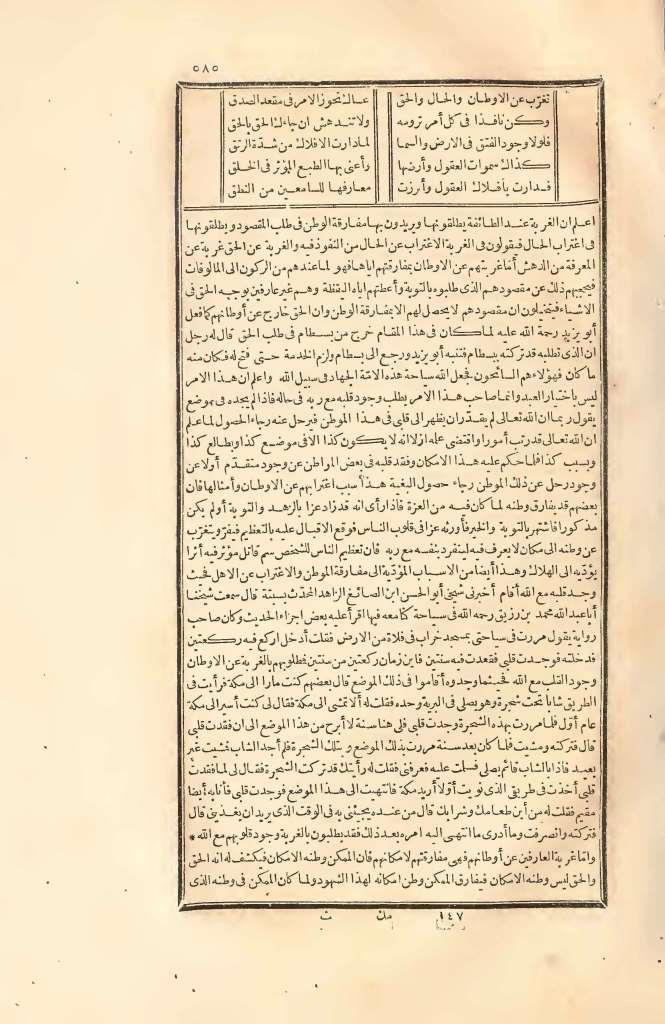 ٥٨٥
تغرّب عن الاوطان والحال والحق عساك تحوز الامر فى مقعد الصدق
وكن نافذا فى كل أمر ترومه ولا تندهش ان جاءك الحق بالحق
فلولا وجود الفتق فى الارض والسما لما دارت الافلاك من شدّة الرتق
كذلك سموات العقول وأرضها وأعنى بها الطبع المؤثر فى الخلق
فدارت بأفلاك العقول وأبرزت معارفها للسامعين من النطق
اعلم ان الغربة عند الطائفة يطلقونها ويريدون بها مفارقة الوطن فى طلب المقصود ويطلقونها
فى اغتراب الحال فيقولون فى الغربة الاغتراب عن الحال من النفوذ فيه والغربة عن الحق غربة عن
المعرفة من الدهش أمّا غربتهم عن الاوطان بمفارقتهم اياها فهو لما عندهم من الركون الى المألوفات
فيحجبهم ذلك عن مقصودهم الذى طلبوه بالتوبة وأعطتهم اياه اليقظة وهم غير عارفين بوجه الحق فى
الاشياء فيتخيلون ان مقصودهم لا يحصل لهم الا بمفارقة الوطن وان الحق خارج عن أوطانهم كما فعل
أبو يزيد رحمة الله عليه لما كان فى هذا المقام خرج من بسطام فى طلب الحق قال له رجل
ان الذى تطلبه قد تركته ببسطام فتنبه أبو يزيد ورجع الى بسطام ولزم الخدمة حتى فتح له فكان منه
ما كان فهؤلاء هم السائحون فجعل الله سياحة هذه الامّة الجهاد فى سبيل الله واعلم ان هذا الامر
ليس باختيار العبد وانما صاحب هذا الامر يطلب وجود قلبه مع ربه فى حاله فاذا لم يجده فى موضع
يقول ربما ان الله تعالى لم يقدّر ان يظهر الى قلبى فى هذا الموطن فيرحل عنه رجاء الحصول لما علم
ان الله تعالى قد رتب أمورا واقتضى علمه ازلا انه لا يكون كذا الا فى موضع كذا وبطالع كذا
وبسبب كذا فلما حكم عليه هذا الامكان وفقد قلبه فى بعض المواطن عن وجود متقدّم أولا عن
وجود رحل عن ذلك الموطن رجاء حصول البغية هذا سبب اغترابهم عن الاوطان وأمثالها فان
بعضهم قد يفارق وطنه لما كان فيه من العزة فاذا رأى انه قد زاد عزا بالزهد والتوبة أو لم يكن
مذكورا فاشتهر بالتوبة والخير فأورثه عزا فى قلوب الناس فوقع الاقبال عليه بالتعظيم فيفرّ ويتغرّب
عن وطنه الى مكان لا يعرف فيه لينفرد بنفسه مع ربه فان تعظيم الناس للشخص سم قاتل مؤثر فيه أثرا
يؤدّيه الى الهلاك وهذا أيضا من الاسباب المؤدّية الى مفارقة الموطن والاغتراب عن الاهل فحيث
وجد قلبه مع الله أقام أخبرنى شيخى أبو الحسن ابن الصائغ الزاهد المحدّث بسبتة قال سمعت شيخنا
أبا عبد الله محمد بن رزيق رحمه الله فى سياحة كنا معه فيها اقرأ عليه بعض اجزاء الحديث وكان صاحب
رواية يقول مررت فى سياحتى بمسجد خراب فى فلاة من الارض فقلت أدخل اركع فيه ركعتين
فدخلته فوجدت قلبى فقعدت فيه سنتين فاين زمان ركعتين من سنتين فطلوبهم بالغربة عن الاوطان
وجود القلب مع الله فحيثما وجدوه أقاموا فى ذلك الموضع قال بعضهم كنت مارا الى مكة فرأيت فى
الطريق شابا تحت شجرة وهو يصلى فى البرية وحده فقلت له ألا تمشى الى مكة فقال لى كنت أسير الى مكة
عام أوّل فلما مررت بهذه الشجرة وجدت قلبى فلى هنا سنة لا أبرح من هذا الموضع الى ان فقدت قلبى
قال فتركته ومشيت فلما كان بعد سنة مررت بذلك الموضع وبتلك الشجرة فلم أجد الشاب فمشيت غير
بعيد فاذا بالشاب قائم يصلى فسلمت عليه فعرفنى فقلت له رأيتك قد تركت الشجرة فقال لى لما فقدت
قلبى أخذت فى طريقى الذى نويت أوّلا أريد مكة فانتهيت الى هذا الموضع فوجدت قلبى فأنا به أيضا
مقيم فقلت له من أين طعامك وشرابك قال من عنده يجيئنى به فى الوقت الذى يريد ان يغذينى قال
فتركته وانصرفت وما أدرى ما انتهى اليه امره بعد ذلك فقد يطلبون بالغربة وجود قلوبهم مع الله *
وامّا غربة العارفين عن أوطانهم فهى مفارقتهم لامكانهم فان الممكن وطنه الامكان فيكشف له انه الحق
والحق ليس وطنه الامكان فيفارق الممكن وطن امكانه لهذا الشهود ولما كان الممكن فى وطنه الذى
١٤٧ مك ث